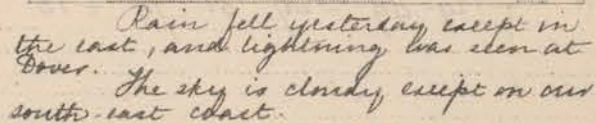 Rain fell yesterday except in
the east, and lightning was seen at
Dover.
The sky is cloudy except on our
south-east coast.